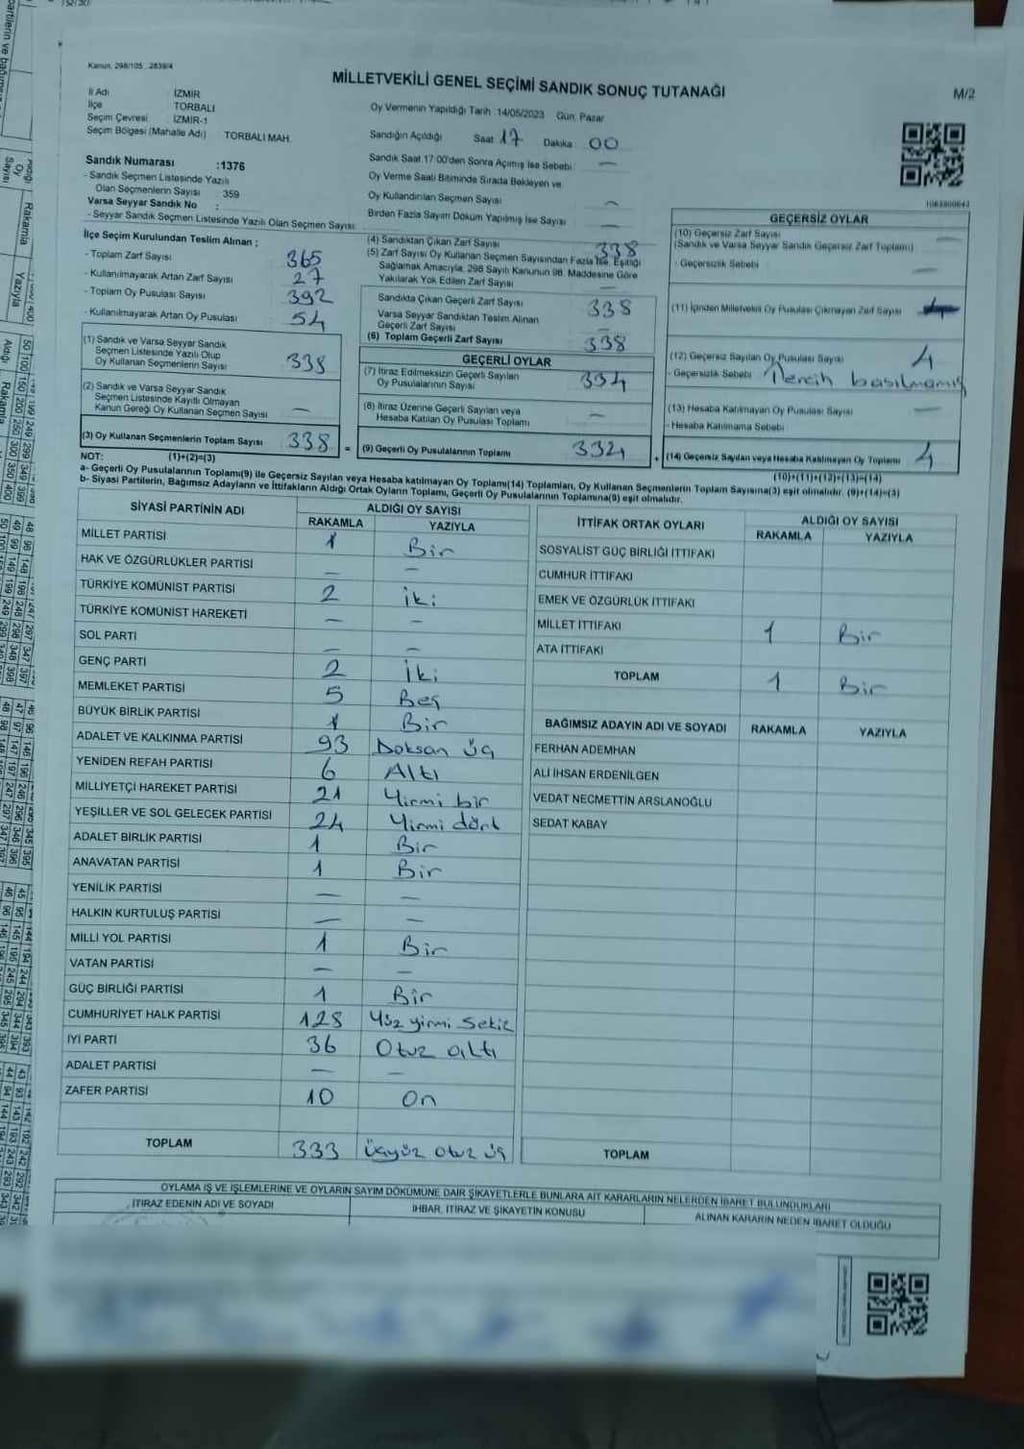 Kanun, 298/105
MİLLETVEKİLİ GENEL SEÇİMİ SANDIK SONUÇ TUTANAĞI
M/2
İl Adı İZMİR
İlçe TORBALI
Seçim Çevresi İZMİR-1
Seçim Bölgesi (Mahalle Adı) TORBALI MAH.
Oy Vermenin Yapıldığı Tarih 14/05/2023 Gün: Pazar
Sandığın Açıldığı Saat 17 Dakika 00
Sandık Saat 17.00'den Sonra Açılmış İse Sebebi —
Oy Verme Saati Bitiminde Sırada Bekleyen ve
Oy Kullandırılan Seçmen Sayısı —
Birden Fazla Sayım Döküm Yapılmış İse Sayısı —
Sandık Numarası :1376
- Sandık Seçmen Listesinde Yazılı
Olan Seçmenlerin Sayısı : 359
Varsa Seyyar Sandık No :
- Seyyar Sandık Seçmen Listesinde Yazılı Olan Seçmen Sayısı
İlçe Seçim Kurulundan Teslim Alınan ;
- Toplam Zarf Sayısı 365
- Kullanılmayarak Artan Zarf Sayısı 27
- Toplam Oy Pusulası Sayısı 392
- Kullanılmayarak Artan Oy Pusulası 54
(4) Sandıktan Çıkan Zarf Sayısı 338
(5) Zarf Sayısı Oy Kullanan Seçmen Sayısından Fazla İse, Eşitliği
Sağlamak Amacıyla, 298 Sayılı Kanunun 98. Maddesine Göre
Yakılarak Yok Edilen Zarf Sayısı —
Sandıkta Çıkan Geçerli Zarf Sayısı 338
Varsa Seyyar Sandıktan Teslim Alınan
Geçerli Zarf Sayısı —
(6) Toplam Geçerli Zarf Sayısı 338
(1) Sandık ve Varsa Seyyar Sandık
Seçmen Listesinde Yazılı Olup
Oy Kullanan Seçmenlerin Sayısı 338
(2) Sandık ve Varsa Seyyar Sandık
Seçmen Listesinde Kayıtlı Olmayan
Kanun Gereği Oy Kullanan Seçmen Sayısı —
(3) Oy Kullanan Seçmenlerin Toplam Sayısı 338 =
GEÇERLİ OYLAR
(7) İtiraz Edilmeksizin Geçerli Sayılan
Oy Pusulalarının Sayısı 334
(8) İtiraz Üzerine Geçerli Sayılan veya
Hesaba Katılan Oy Pusulası Toplamı —
(9) Geçerli Oy Pusulalarının Toplamı 334 +
GEÇERSİZ OYLAR
(10) Geçersiz Zarf Sayısı —
(Sandık ve Varsa Seyyar Sandık Geçersiz Zarf Toplamı)
- Geçersizlik Sebebi —
(11) İçinden Milletvekili Oy Pusulası Çıkmayan Zarf Sayısı
(12) Geçersiz Sayılan Oy Pusulası Sayısı 4
- Geçersizlik Sebebi Tercih basılmamış
(13) Hesaba Katılmayan Oy Pusulası Sayısı —
- Hesaba Katılmama Sebebi
(14) Geçersiz Sayılan veya Hesaba Katılmayan Oy Toplamı 4
NOT: (1)+(2)=(3) (10)+(11)+(12)+(13)=(14)
a- Geçerli Oy Pusulalarının Toplamı(9) ile Geçersiz Sayılan veya Hesaba katılmayan Oy Toplamı(14) Toplamları, Oy Kullanan Seçmenlerin Toplam Sayısına(3) eşit olmalıdır. (9)+(14)=(3)
b- Siyasi Partilerin, Bağımsız Adayların ve İttifakların Aldığı Ortak Oyların Toplamı, Geçerli Oy Pusulalarının Toplamına(9) eşit olmalıdır.
SİYASİ PARTİNİN ADI ALDIĞI OY SAYISI
RAKAMLA YAZIYLA
MİLLET PARTİSİ 1 Bir
HAK VE ÖZGÜRLÜKLER PARTİSİ — —
TÜRKİYE KOMÜNİST PARTİSİ 2 iki
TÜRKİYE KOMÜNİST HAREKETİ — —
SOL PARTİ — —
GENÇ PARTİ 2 İki
MEMLEKET PARTİSİ 5 Beş
BÜYÜK BİRLİK PARTİSİ 1 Bir
ADALET VE KALKINMA PARTİSİ 93 Doksan üç
YENİDEN REFAH PARTİSİ 6 Altı
MİLLİYETÇİ HAREKET PARTİSİ 21 Yirmi bir
YEŞİLLER VE SOL GELECEK PARTİSİ 24 Yirmi dört
ADALET BİRLİK PARTİSİ 1 Bir
ANAVATAN PARTİSİ 1 Bir
YENİLİK PARTİSİ — —
HALKIN KURTULUŞ PARTİSİ — —
MİLLİ YOL PARTİSİ 1 Bir
VATAN PARTİSİ — —
GÜÇ BİRLİĞİ PARTİSİ 1 Bir
CUMHURİYET HALK PARTİSİ 128 Yüz yirmi Sekiz
İYİ PARTİ 36 Otuz altı
ADALET PARTİSİ — —
ZAFER PARTİSİ 10 On
TOPLAM 333 üçyüz otuz üç
İTTİFAK ORTAK OYLARI ALDIĞI OY SAYISI
RAKAMLA YAZIYLA
SOSYALİST GÜÇ BİRLİĞİ İTTİFAKI
CUMHUR İTTİFAKI
EMEK VE ÖZGÜRLÜK İTTİFAKI
MİLLET İTTİFAKI 1 Bir
ATA İTTİFAKI
TOPLAM 1 Bir
BAĞIMSIZ ADAYIN ADI VE SOYADI RAKAMLA YAZIYLA
FERHAN ADEMHAN
ALİ İHSAN ERDENİLGEN
VEDAT NECMETTİN ARSLANOĞLU
SEDAT KABAY
TOPLAM
OYLAMA İŞ VE İŞLEMLERİNE VE OYLARIN SAYIM DÖKÜMÜNE DAİR ŞİKAYETLERLE BUNLARA AİT KARARLARIN NELERDEN İBARET BULUNDUKLARI
İTİRAZ EDENİN ADI VE SOYADI İHBAR, İTİRAZ VE ŞİKAYETİN KONUSU ALINAN KARARIN NEDEN İBARET OLDUĞU